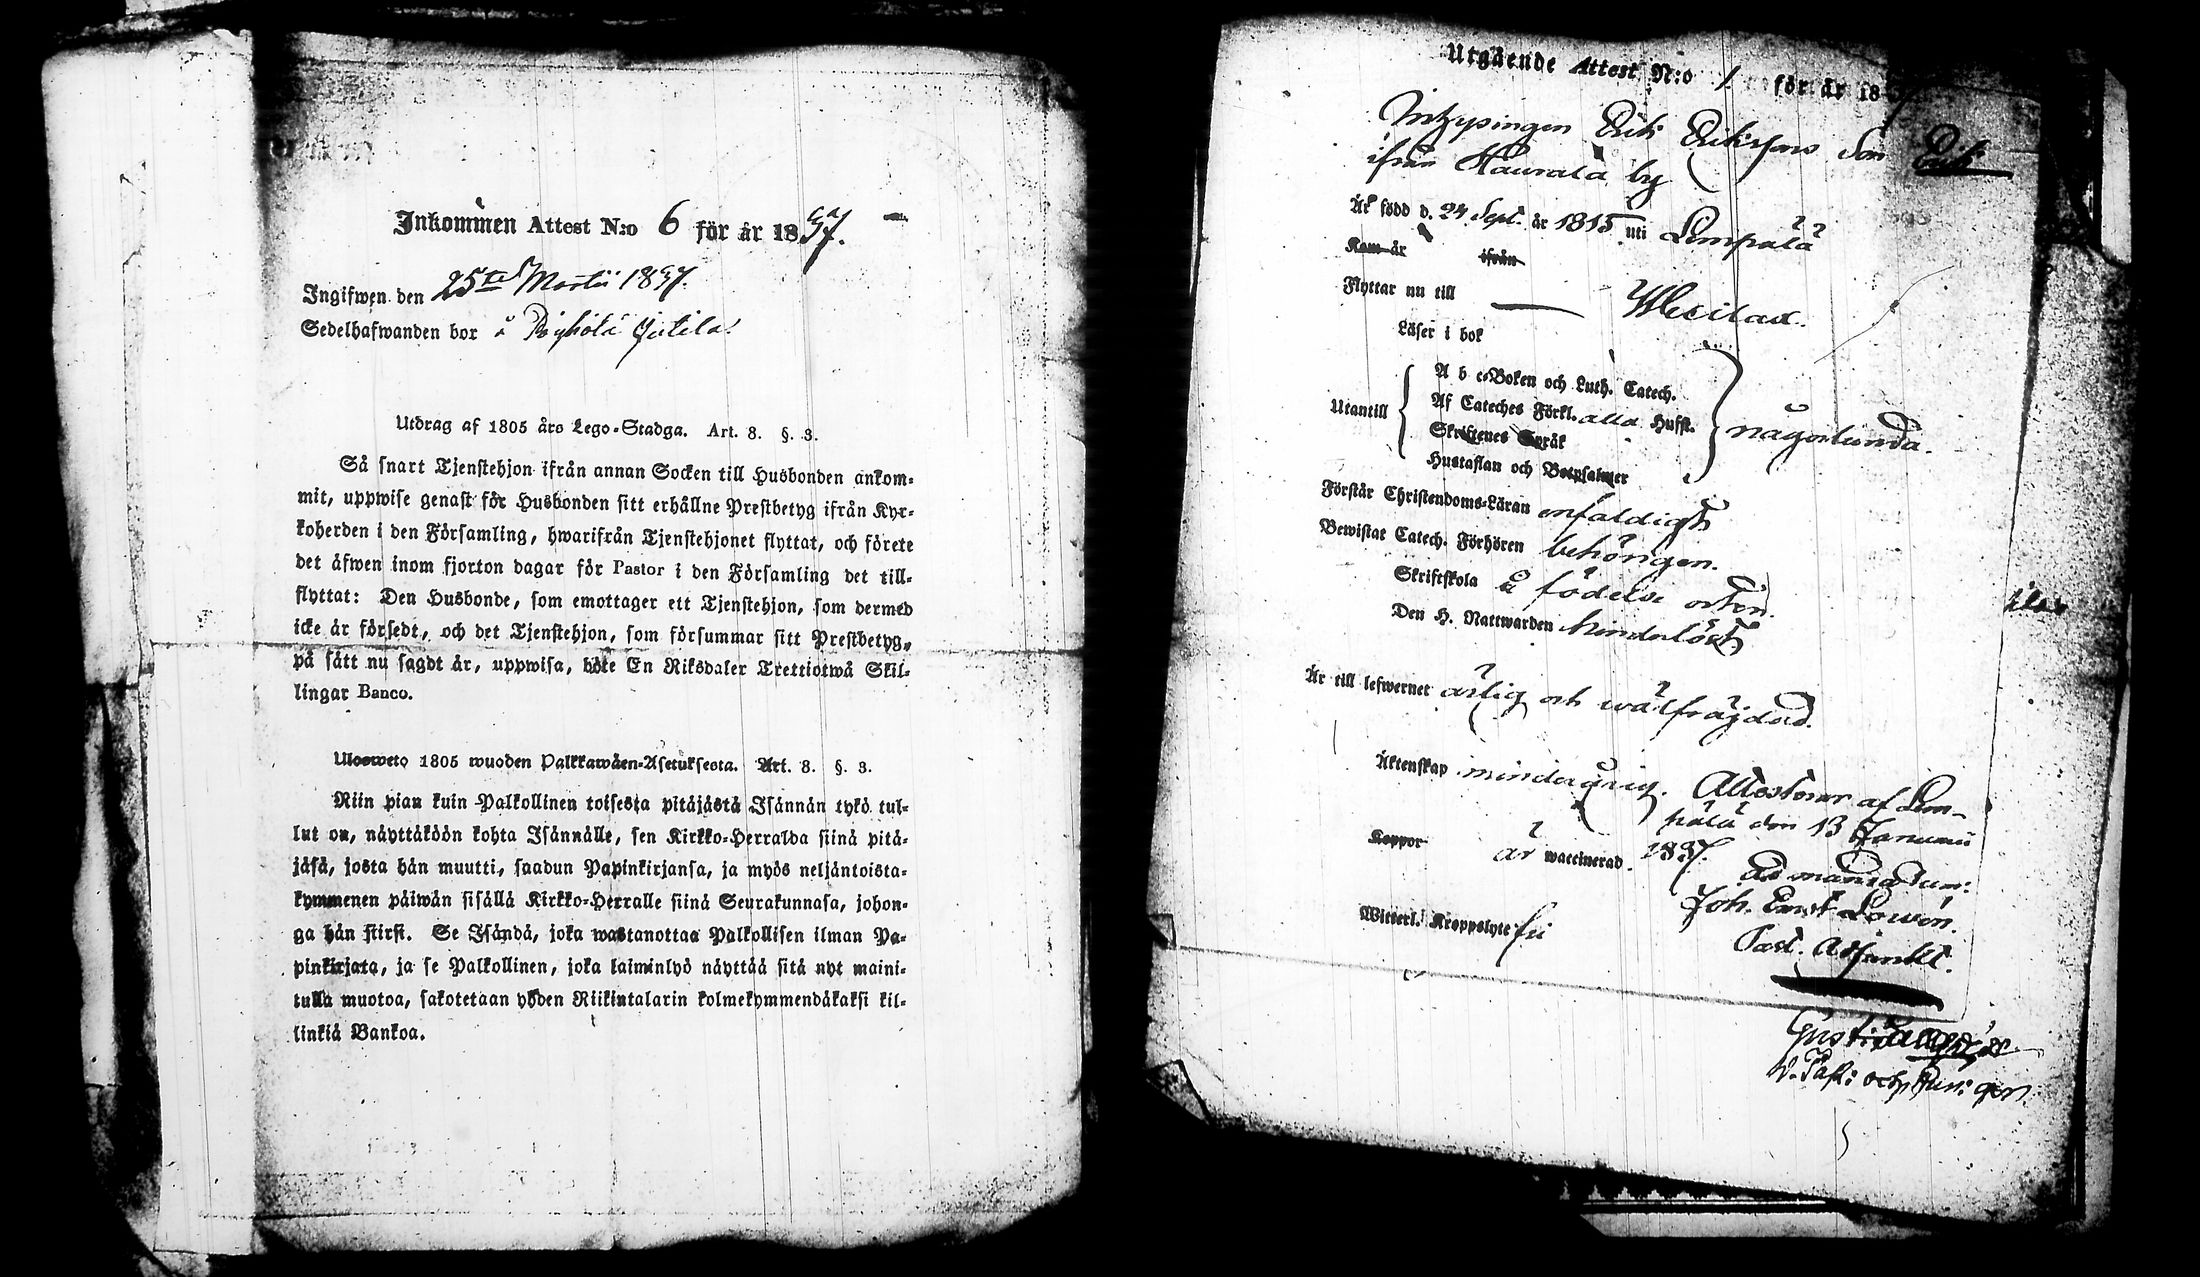 Inkommen Attest N:o 6 för år 1837.
Ingifwen den 25te Martii 1837.
Sedelhafwanden bor å
Utdrag af 1805 års Lego-Stadga. Art. 8. §. 3.
Så snart Tjenstehjon ifrån annan Socken till Husbonden ankom-
mit, uppwise genast för Husbonden sitt erhållne Prestbetyg ifrån Kyr-
koherden i den Församling, hwarifrån Tjenstehjonet flyttat, och förete
det äfwen inom fjorton dagar för Pastor i den Församling det till-
flyttat: Den Husbonde, som emottager ett Tjenstehjon, som dermed
icke är försedt, och det Tjenstehjon, som försummar sitt Prestbetyg,
på sätt nu sagdt är, uppwisa, böte En Riksdaler Trettiotwå Skil-
lingar Banco.
Ulosweto 1805 wuoden Palkkawäen-Asetuksesta. Art. 8. §. 3.
Niin pian kuin Palkollinen toisesta pitäjästä Isännän tykö tul-
lut on, näyttäköön kohta Isännälle, sen Kirkko-Herralda siinä pitä-
jäsä, josta hän muutti, saadun Papinkirjansa, ja myös neljäntoista-
kymmenen päiwän sisällä Kirkko-Herralle siinä Seurakunnasa, johon-
ga hän siirsi. Se Isändä, joka wastanottaa Palkollisen ilman Pa-
pinkirjata, ja se Palkollinen, joka laiminlyö näyttää sitä nyt maini-
tulla muotoa, sakotetaan yhden Riikintalarin kolmekymmendäkaksi kil-
linkiä Bankoa.
Utgående Attest N:o 1 för år 18
Inhysingen Erik Eriksons son Erik
ifrån Haurala by
Är född d. 24 Sept. år 1815 uti Lempälä
Kom år ifrån
Flyttar nu till Wesilax.
Läser i bok
A b c-Boken och Luth. Catech.
Utantill Af Cateches Förkl. alla Hufst. någorlunda.
Skriftenes Språk
Hustaflan och Botpsalmer
Förstår Christendoms-Läran enfaldigt
Bewistat Catech. Förhören behörigen.
Skriftskola å födelse orten.
Den H. Nattwarden hinderlöst
Är till lefwernet ärlig och wälfräjdad.
Äktenskap minderårig. Attesterar af Lem-
pälä den 13 Januarii
Koppor är waccinerad. 1837.
Ad mandatum:
Joh. Ernst Lowén.
Witterl. Kroppslyte fri
Past. Adjunkt.